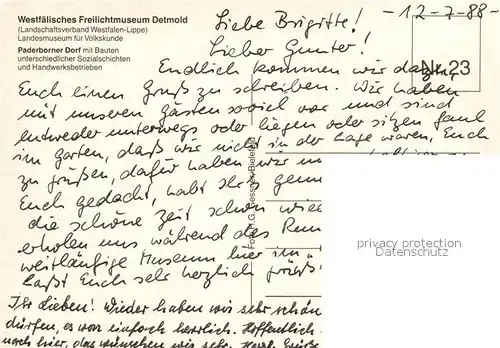 Westfälisches Freilichtmuseum Detmold
(Landschaftsverband Westfalen-Lippe)
Landesmuseum für Volkskunde
Paderborner Dorf mit Bauten
unterschiedlicher Sozialschichten
und Handwerksbetrieben
-12-7-88-
Liebe Brigitte!
Lieber Gunter!
Nr. 23
Endlich kommen wir dazu,
Euch einen Gruß zu schreiben. Wir haben
mit unseren Gästen soviel vor und sind
entweder unterwegs oder liegen oder sitzen faul
im Garten, daß wir nicht in der Lage waren, Euch
zu grüßen, dafür haben wir
Euch gedacht, habt Ihr's
die schöne Zeit schon
erholen uns während des
weitläufige Museum hier im
Laßt Euch sehr herzlich
Ihr Lieben! Wieder haben wir sehr schön
dürfen, es war einfach herrlich. Hoffentlich
noch hier, das wünschen wir sehr. Herzl. Grüße
privacy protection
Datenschutz